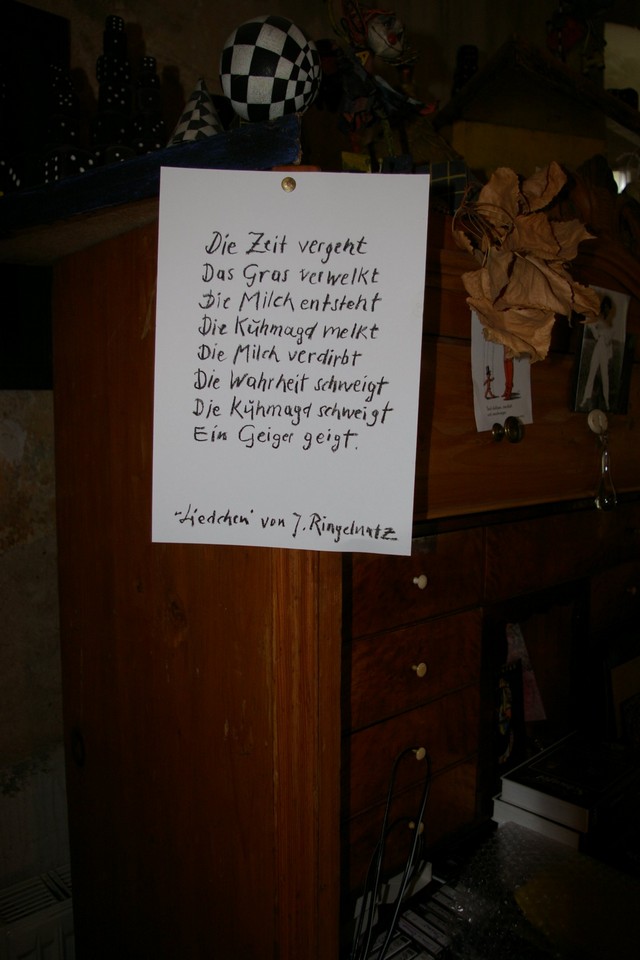 Die Zeit vergeht
Das Gras verwelkt
Die Milch entsteht
Die Kŭhmagd melkt
Die Milch verdirbt
Die Wahrheit schweigt
Die Kŭhmagd schweigt
Ein Geiger geigt.
"Liedchen" von J. Ringelnatz